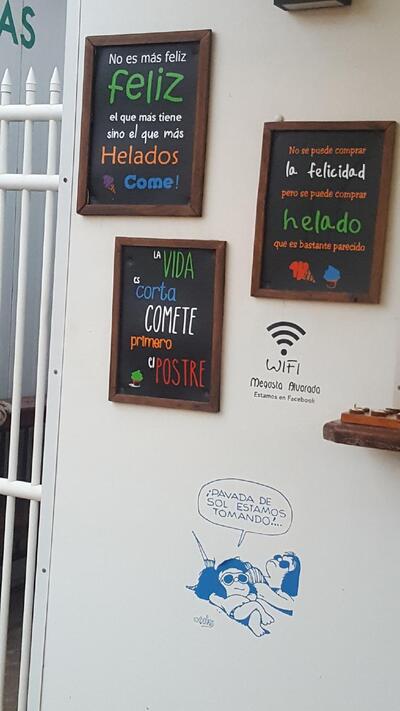 AS
No es más feliz
feliz
el que más tiene
sino el que más
Helados
Come!
No se puede comprar
la felicidad
pero se puede comprar
helado
que es bastante parecido
LA VIDA
es
corta
COMETE
primero
el
POSTRE
WIFI
Megusta Alvorada
Estamos en Facebook
¡PAVADA DE
SOL ESTAMOS
TOMANDO!...